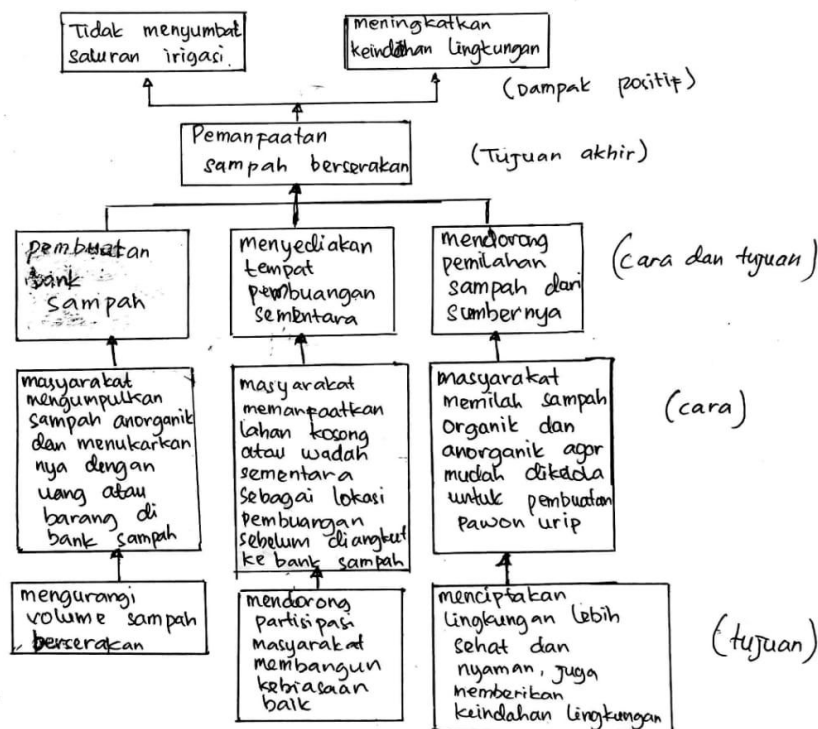 Tidak menyumbat
saluran irigasi.
meningkatkan
keindahan lingkungan
(Dampak positif)
Pemanfaatan
sampah berserakan
(Tujuan akhir)
pembuatan
bank
sampah
menyediakan
tempat
pembuangan
sementara
mendorong
pemilahan
sampah dari
sumbernya
(cara dan tujuan)
masyarakat
mengumpulkan
sampah anorganik
dan menukarkan
nya dengan
uang atau
barang di
bank sampah
masyarakat
memanfaatkan
lahan kosong
atau wadah
sementara
sebagai lokasi
pembuangan
sebelum diangkut
ke bank sampah
masyarakat
memilah sampah
organik dan
anorganik agar
mudah dikelola
untuk pembuatan
pawon urip
(cara)
mengurangi
volume sampah
berserakan
mendorong
partisipasi
masyarakat
membangun
kebiasaan
baik
menciptakan
lingkungan lebih
sehat dan
nyaman, juga
memberikan
keindahan lingkungan
(tujuan)